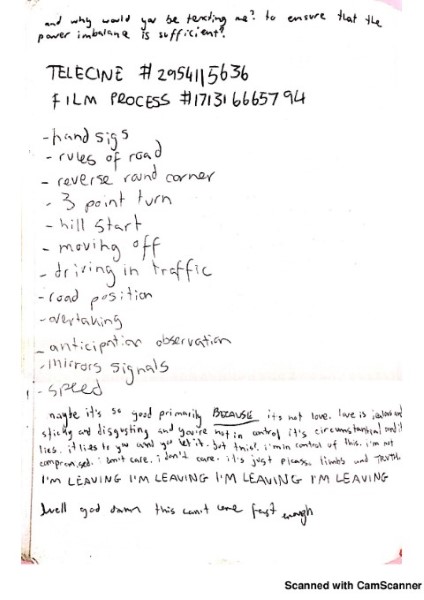 and why would you be texting me? to ensure that the
power imbalance is sufficient?
TELECINE # 2954115636
FILM PROCESS #17131666579 4
- hand sigs
- rules of road
- reverse round corner
- 3 point turn
- hill start
- moving off
- driving in traffic
- road position
- overtaking
- anticipation observation
- mirrors signals
- speed
maybe it's so good primarily BECAUSE its not love. love is jealous and
sticky and disgusting and you're not in control it's circumstantial and it
lies. it lies to you and you let it. but this? i'm in control of this. i'm not
compromised. i don't care. i don't care. it's just limbs and TRUTH.
I'M LEAVING I'M LEAVING I'M LEAVING I'M LEAVING
well god damn this can't come fast enough
Scanned with CamScanner